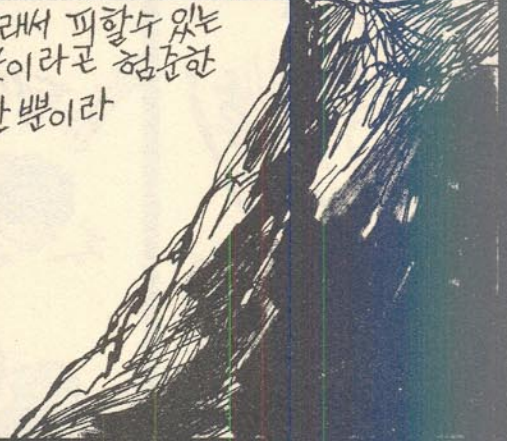 래서 피할수 있는
이라곤 험준한
뿐이라